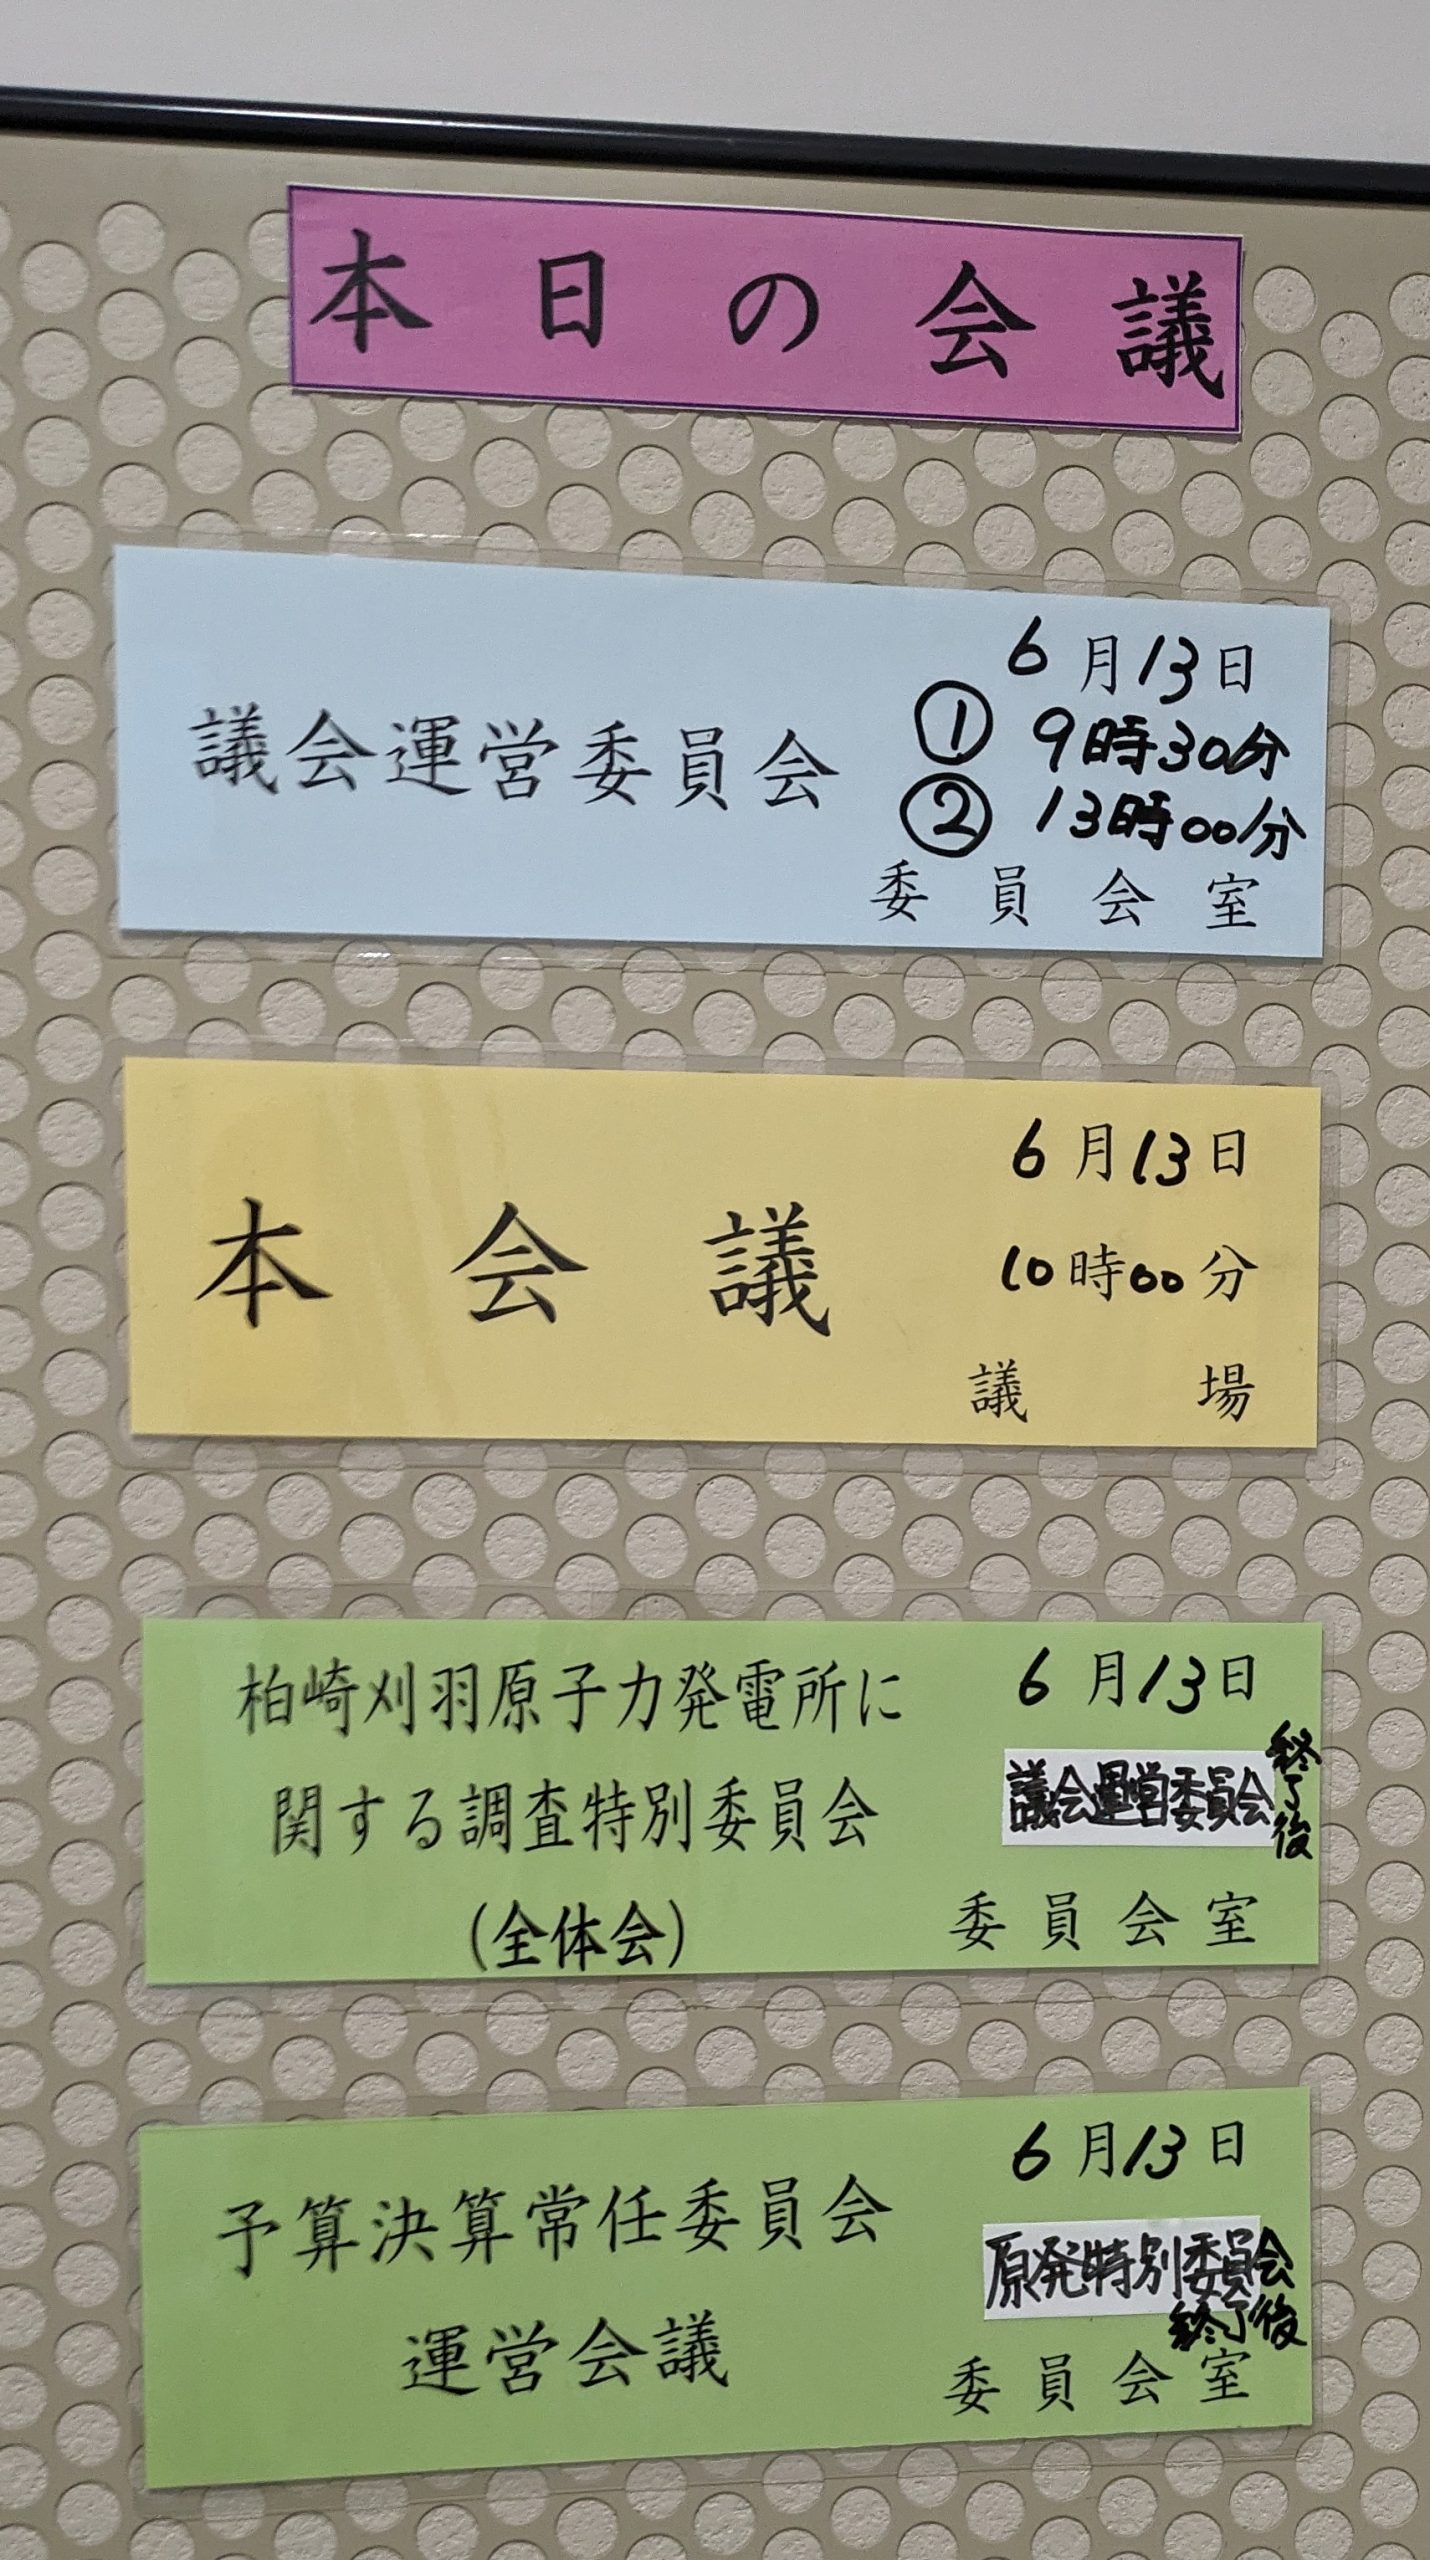 本日の会議
議会運営委員会
6月13日
① 9時30分
② 13時00分
委員会室
本会議
6月13日
10時00分
議場
柏崎刈羽原子力発電所に
関する調査特別委員会
(全体会)
6月13日
議会運営委員会終了後
委員会室
予算決算常任委員会
運営会議
6月13日
原発特別委員会
終了後
委員会室